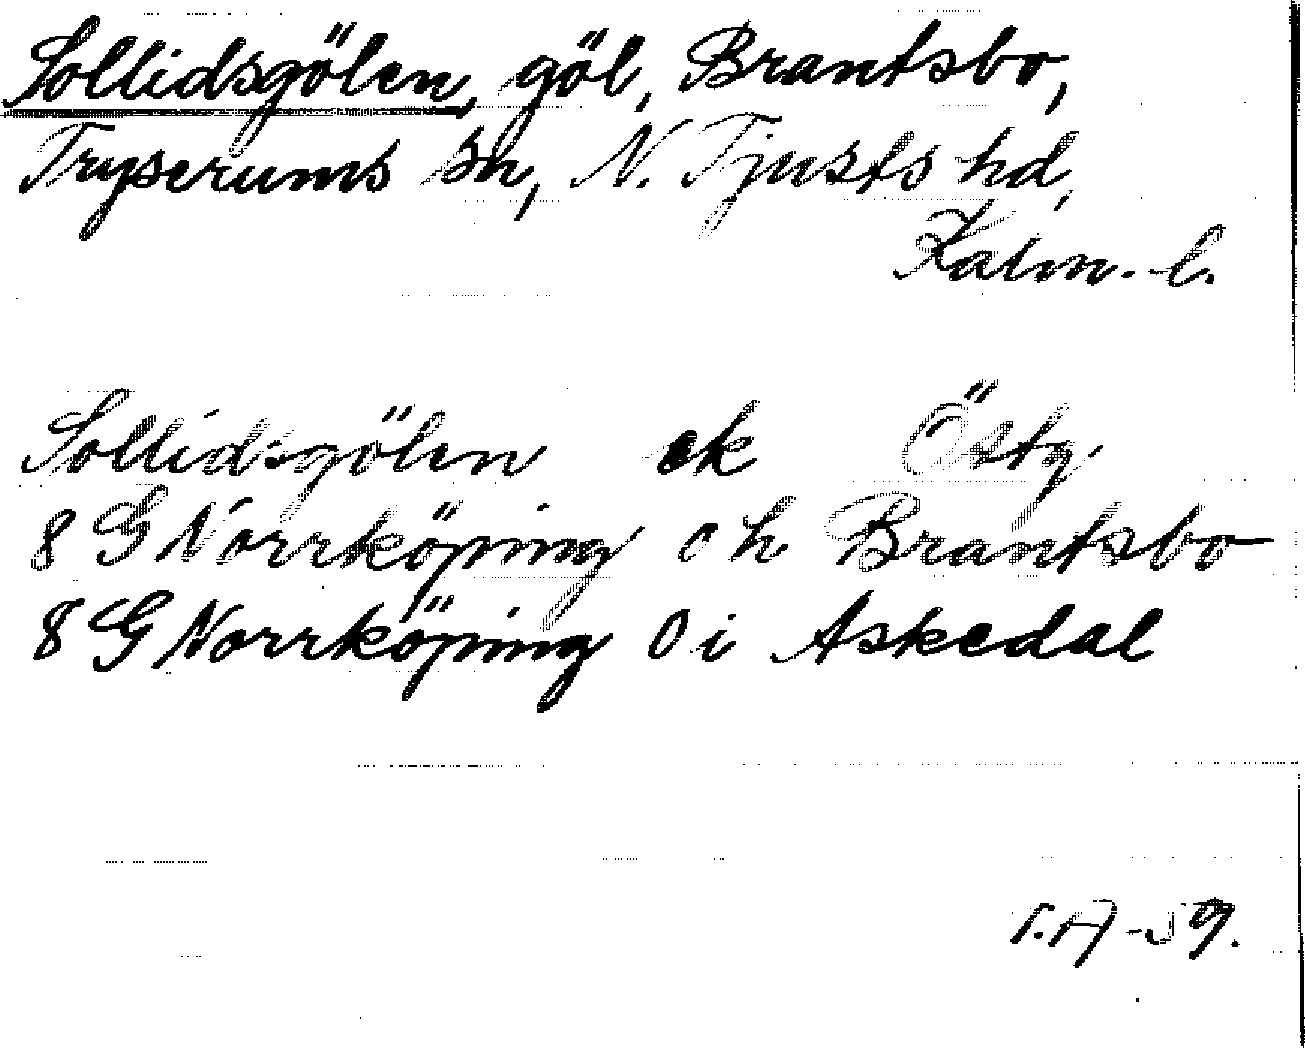 Sollidsgölen, göl, Brantsbo,
Tryserums sn, N. Tjusts hd,
Kalm. l.
Sollidsgölen ek Östg
8 G Norrköping c h Brantsbo
8 G Norrköping 0 i Askedal
T.A-59.